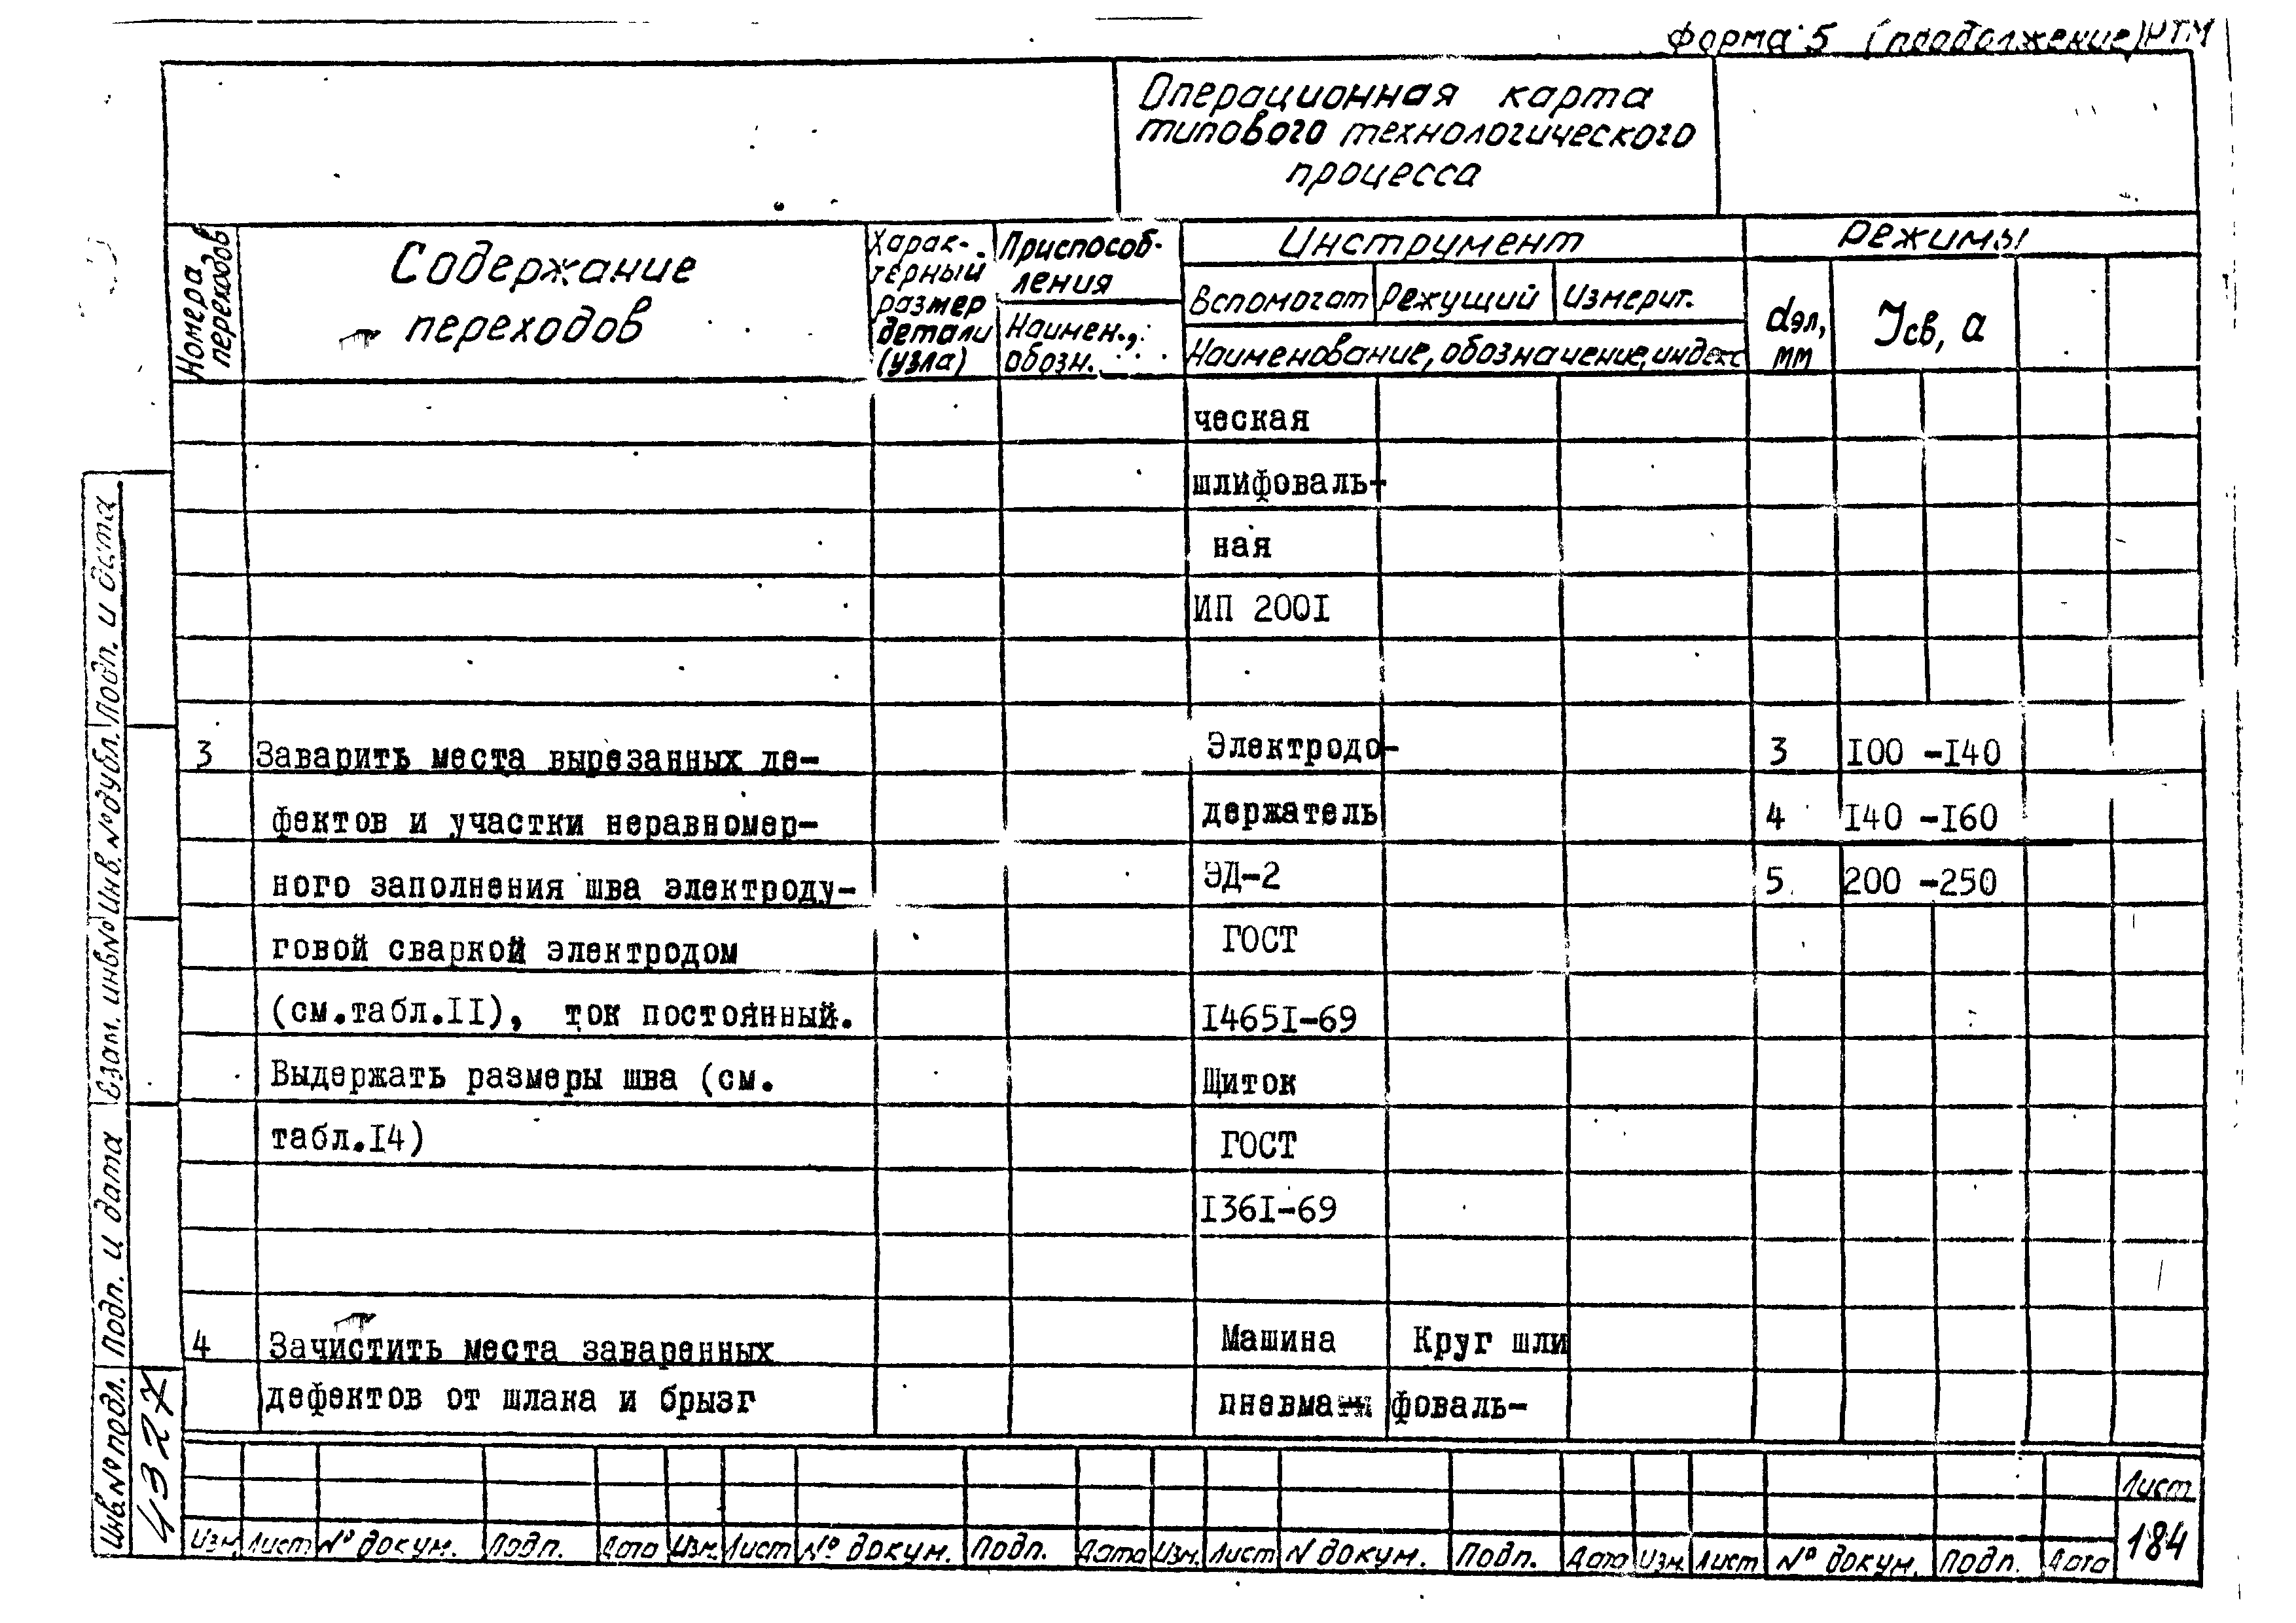 Форма 5 (продолжение) РТМ
Операционная карта
типового технологического
процесса
Номера
переходов
Содержание
переходов
Харак-
терный
размер
детали
(узла)
Приспособ-
ления
Наимен.,
обозн.
Инструмент
Вспомогат Режущий Измерит.
Наименование, обозначение, индекс
Режимы
dэл,
мм
Jсв, а
ческая
шлифоваль-
ная
ИП 200I
3 Заварить места вырезанных де- Электродо- 3 I00 -I40
фектов и участки неравномер- держатель 4 I40 -I60
ного заполнения шва электроду- ЭД-2 5 200 -250
говой сваркой электродом ГОСТ
(см.табл.II), ток постоянный. I465I-69
Выдержать размеры шва (см. Щиток
табл.I4) ГОСТ
I36I-69
4 Зачистить места заваренных Машина Круг шли
дефектов от шлака и брызг пневмати фоваль-
Подп. и дата
Инв. № дубл.
Взам. инв №
Подп. и дата
Инв № подл.
4327
Изм. Лист № докум. Подп. Дата Изм. Лист № докум. Подп. Дата Изм. Лист N докум. Подп. Дата Изм Лист № докум. Подп. Дата
Лист
184